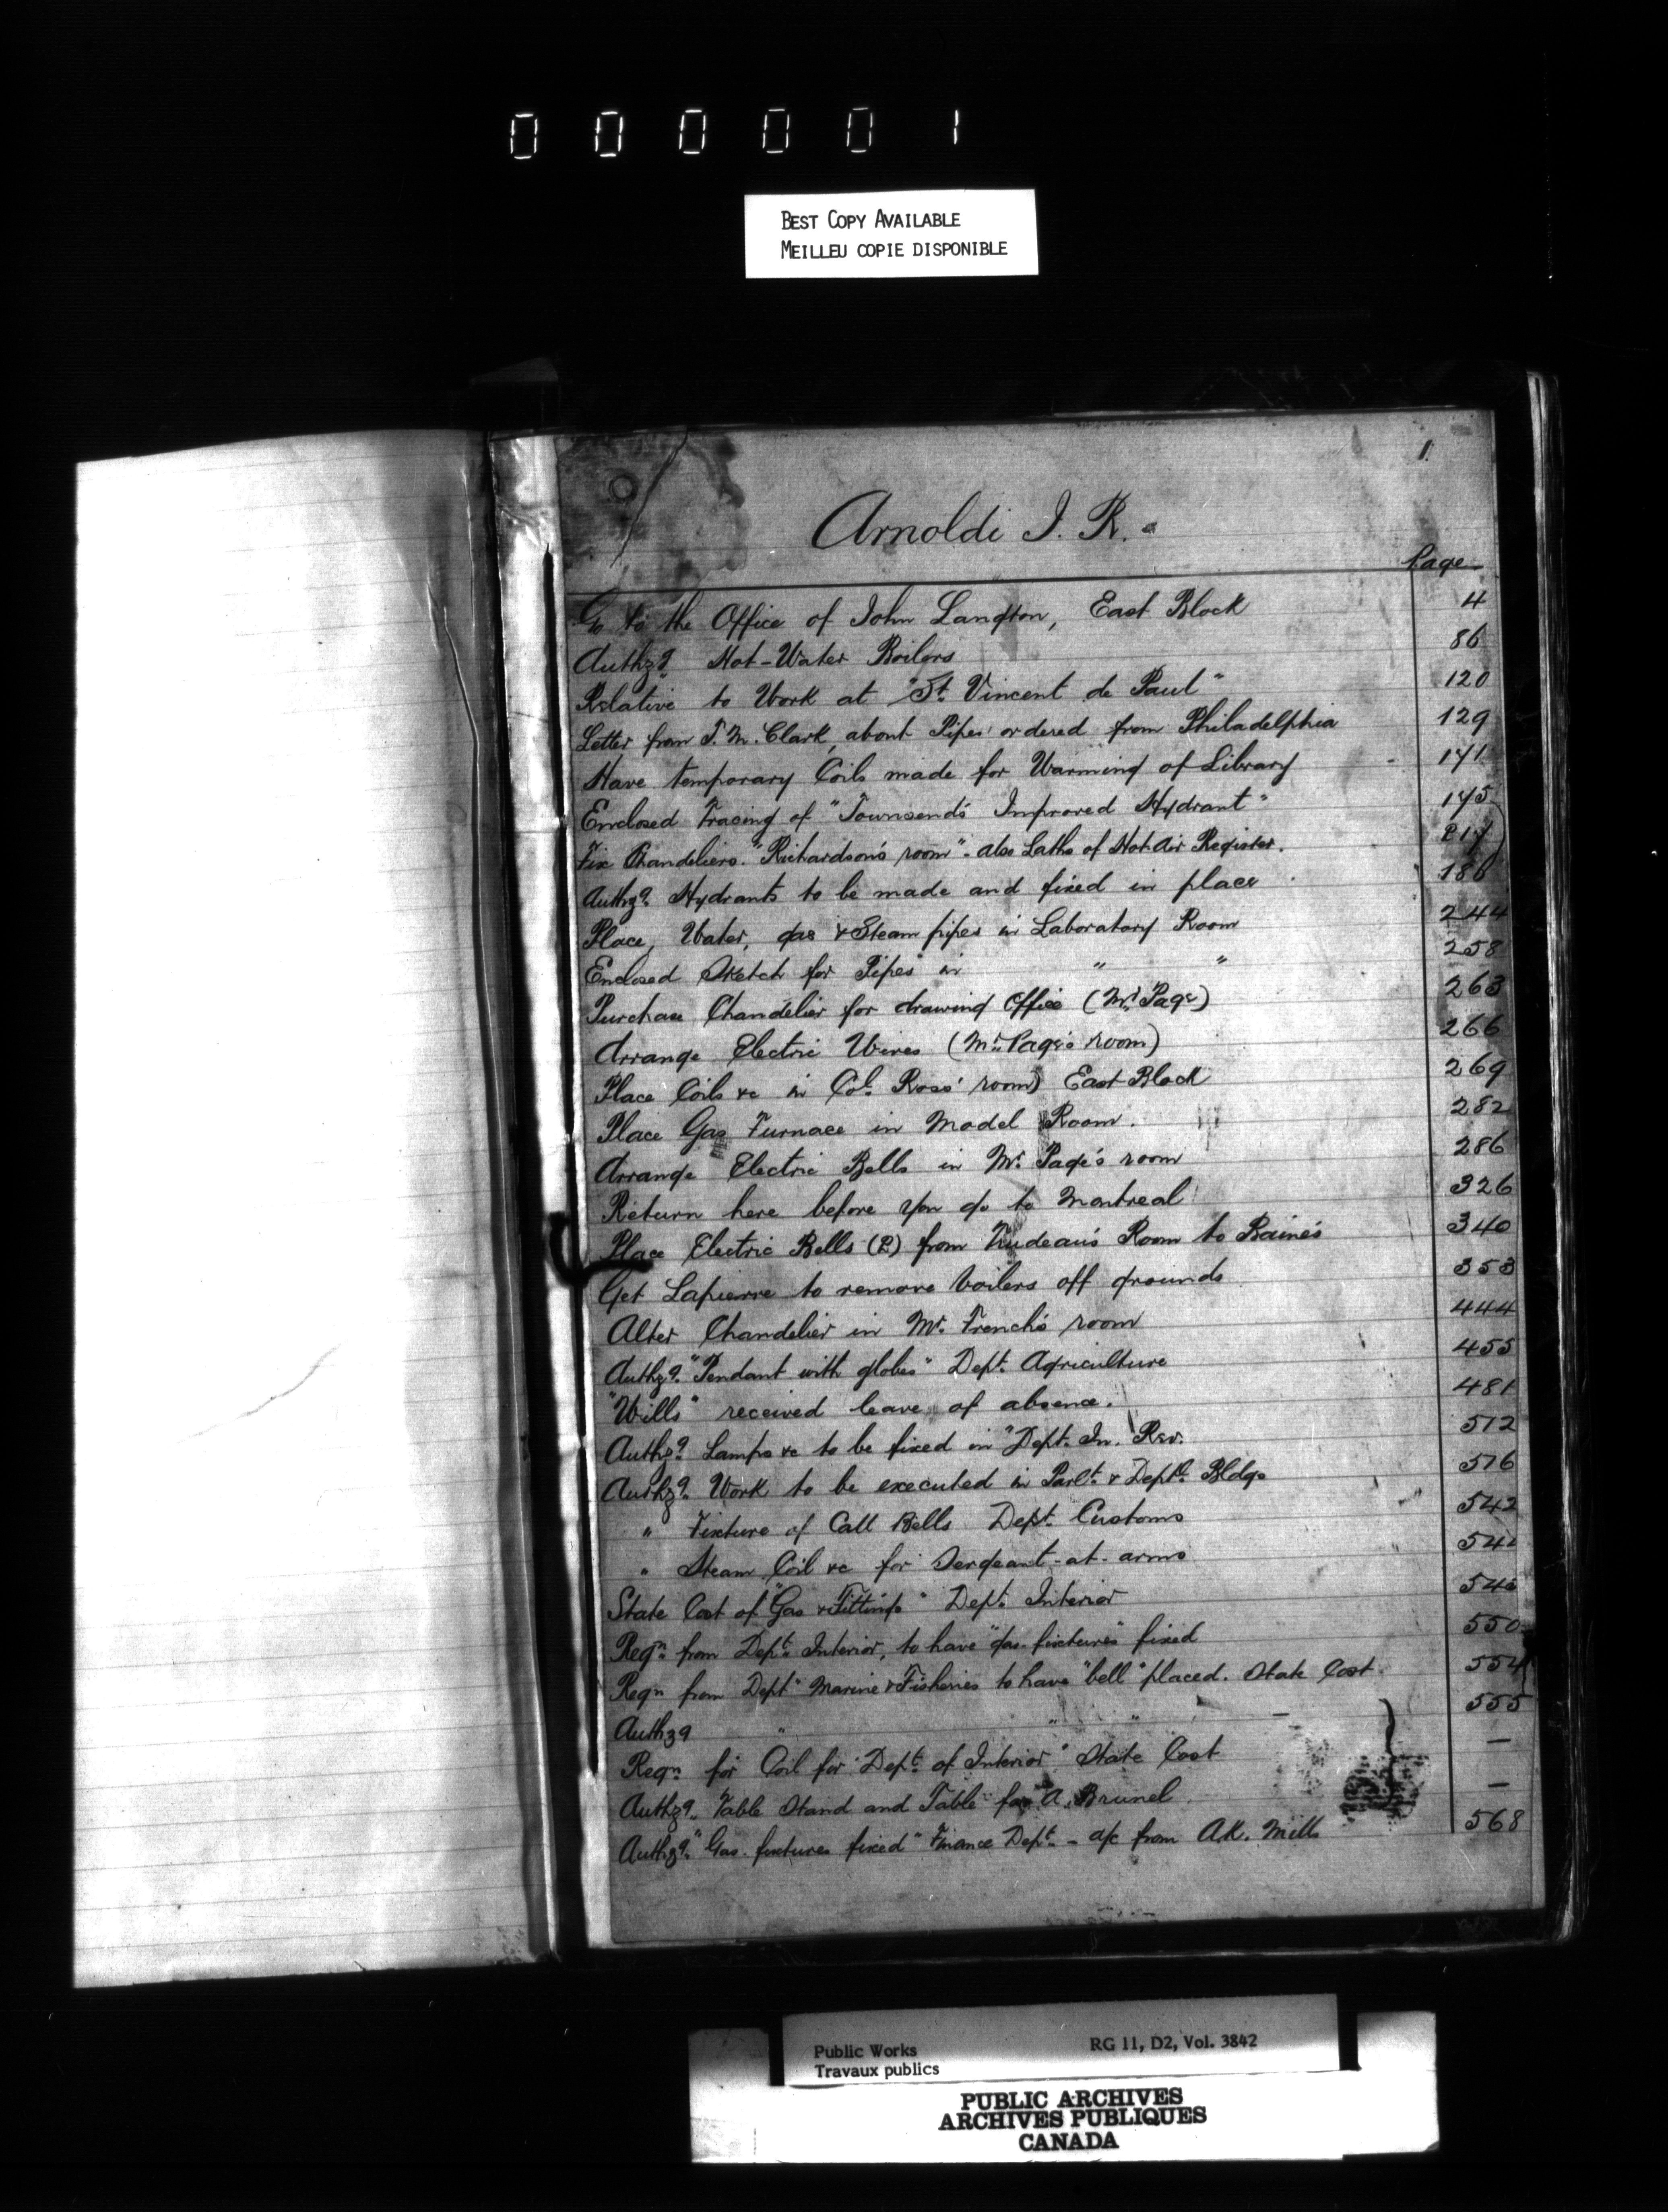 000001
BEST COPY AVAILABLE
MEILLEU COPIE DISPONIBLE
1.
Arnoldi J. R.
Page
Go to the Office of John Langton, East Block 4
Authzg. Hot-Water Boilers 86
Relative to Work at "St. Vincent de Paul" 120
Letter from T. M. Clark, about Pipes ordered from Philadelphia 129
Have temporary Coils made for Warming of Library 141
Enclosed Tracing of "Townsend's Improved Hydrant" 145
Fix Chandeliers. "Richardson's room" - also Laths of Hot Air Register. 217
Authzg. Hydrants to be made and fixed in place 186
Place, Water, gas & Steam pipes in Laboratory Room 244
Enclosed Sketch for Pipes in " " 258
Purchase Chandelier for drawing Office (Mr. Page) 263
Arrange Electric Wires (Mr. Page's room) 266
Place Coils &c in Col. Ross' room) East Block 269
Place Gas Furnace in Model Room. 282
Arrange Electric Bells in Mr. Page's room 286
Return here before you go to Montreal 326
Place Electric Bells (2) from Trudeau's Room to Baine's 340
Get Lapierre to remove boilers off grounds 353
Alter Chandelier in Mr. French's room 444
Authzg. "Pendant with globes" Dept. Agriculture 455
"Wills" received leave of absence. 481
Authzg. Lamps &c to be fixed in "Dept. In. Rev. 512
Authzg. Work to be executed in Parlt. & Deptl. Bldgs 516
" Fixture of Call Bells Dept. Customs 542
" Steam Coil &c for Sergeant-at-arms
State Cost of "Gas & Fittings" Dept. Interior
Reqn. from Dept. Interior, to have "gas fixtures" fixed 550
Reqn from Dept. Marine & Fisheries to have "bell" placed. State Cost. 554
Authzg " " " 555
Reqn. for Coil for "Dept. of Interior" State Cost —
Authzg. Table Stand and Table for A. Brunel —
Authzg. "Gas fixtures fixed" Finance Dept. - a/c from A.K. Mills 568
Public Works RG 11, D2, Vol. 3842
Travaux publics
PUBLIC ARCHIVES
ARCHIVES PUBLIQUES
CANADA